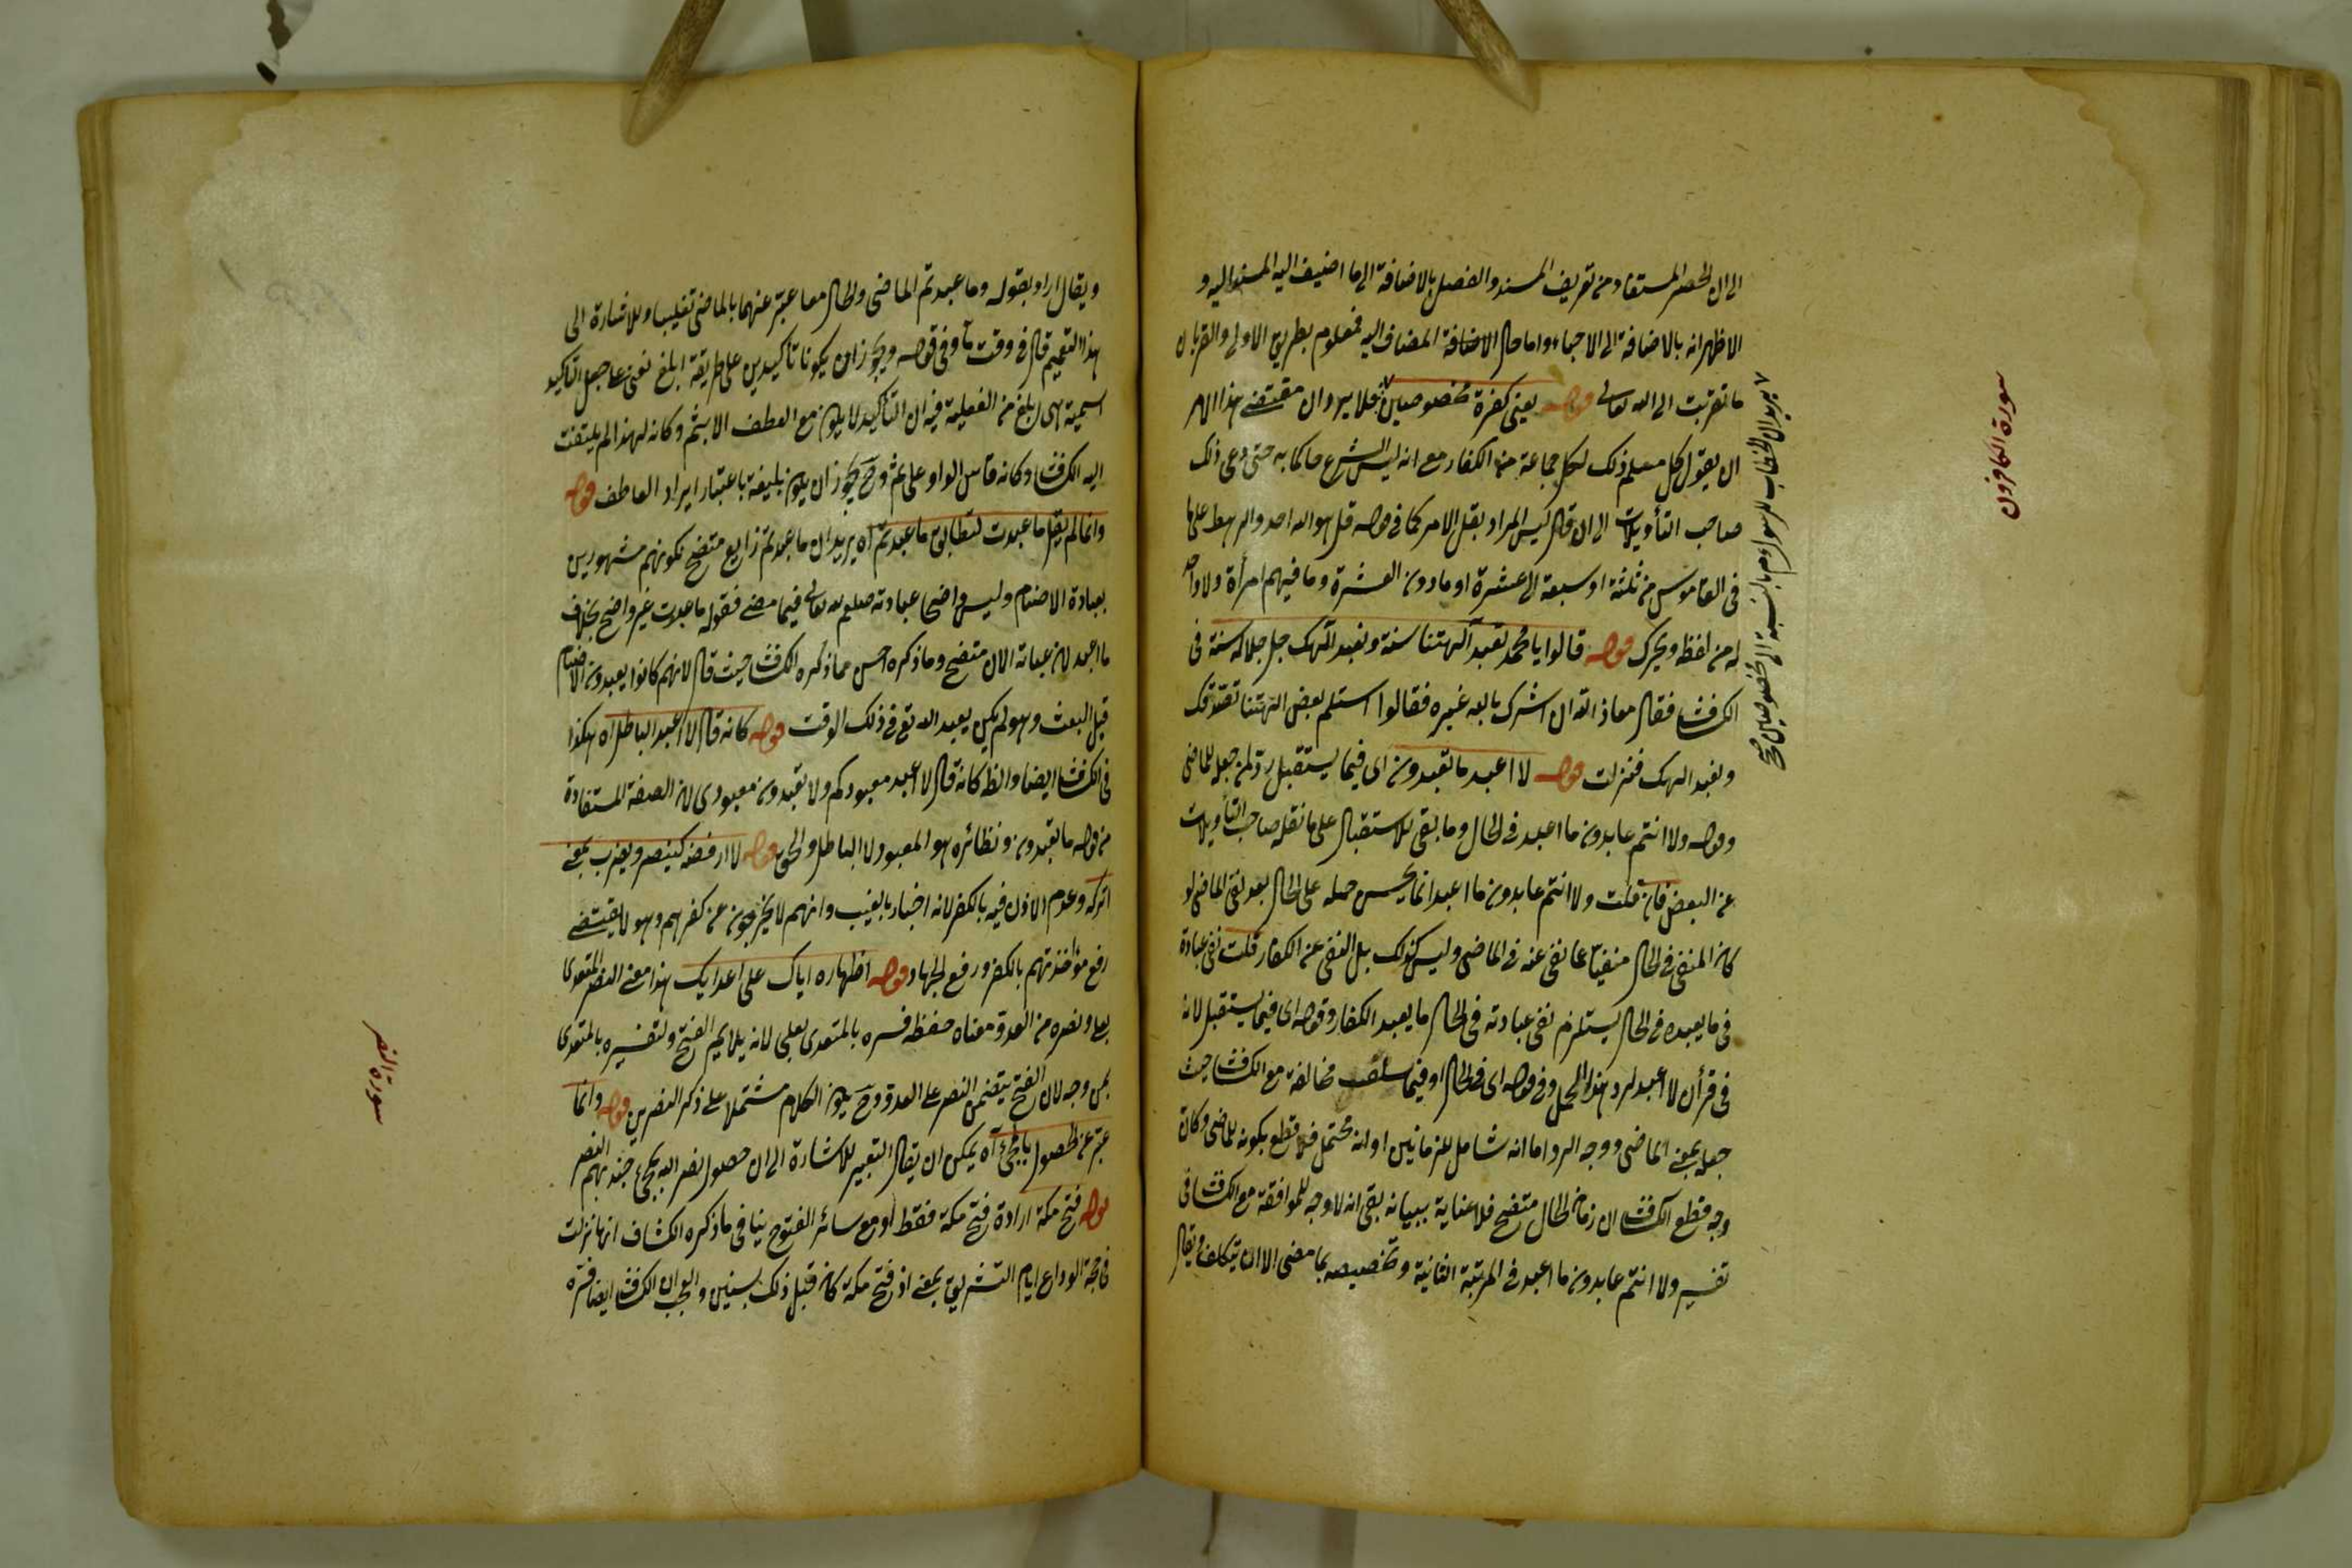 الى ان الحصر المستفاد من تعريف المسند والفصل بالاضافة الى ما اضيف اليه المسند اليه و
الاظهر انه بالاضافة الى الاحباء واما حال الاضافة المضاف اليه فمعلوم بطريق الاولى والقربان
ما تقربت الى الله تعالى قوله يعنى كفرة مخصوصين فلا يرد ان مقتضى هذا الامر
ان يقول كل مسلم ذلك لكل جماعة من الكفار مع انه ليس الشرع حاكما به حتى دعى ذلك
صاحب التأويلات الى ان قال ليس المراد بقل الامر كما فى قوله قل هو الله احد والرهط على ما
فى القاموس من ثلثة او سبعة الى عشرة او ما دون العشرة وما فيهم امرأة ولا واحد
له من لفظه ويحرك قوله قالوا يا محمد تعبد آلهتنا سنة ونعبد الهك جل جلاله سنة فى
الكشاف فقال معاذ الله ان اشرك بالله غيره فقالوا استلم بعض الهتنا نصدقك
ونعبد الهك فنزلت قوله لا اعبد ما تعبدون اى فيما يستقبل رد لمن جعله للماضى
وقوله ولا انتم عابدون ما اعبد فى الحال وما بقى للاستقبال على ما نقله صاحب التأويلات
عن البعض فان قلت ولا انتم عابدون ما اعبد انما يحسن حمله على الحال بعد نفى الماضى لو
كان المنفى فى الحال منفيا عما نفى عنه فى الماضى وليس كذلك بل النفى عن الكفار قلت نفى عبادة
فى ما يعبده فى الحال يستلزم نفى عبادته فى الحال ما يعبد الكفار وقوله اى فيما يستقبل لانه
فى قرأن لا اعبد لرد هذا الحمل وفى قوله اى فى الحال او فيما سلف مخالفة مع الكشاف حيث
جعله بمعنى الماضى ووجه الرد اما انه شامل للزمانين او انه محتمل فلا قطع بكونه للماضى وكان
وجه قطع الكشاف ان زمان الحال متضح فلا عناية ببيانه بقى انه لا وجه للموافقة مع الكشاف فى
تفسير ولا انتم عابدون ما اعبد فى المرتبة الثانية وتخصيصه بما مضى الا ان يتكلف ويقال
يريد ان الخطاب للرسول عم بالنسبة الى مخصوصين صح
سورة الكافرون
ويقال اراد بقوله وما عبدتم الماضى والحال معا عبّر عنهما بالماضى تغليبا وللاشارة الى
هذا التعميم قال فى وقت ما وفى قوله ويجوز ان يكونا تأكيدين على طريقة ابلغ نفى عما جعل التأكيد
اسمية هى ابلغ من الفعلية فيه ان التأكيد لا يكون مع العطف الا بثم وكانه لهذا لم يلتفت
اليه الكشاف وكانه قاس الواو على ثم وح يجوز ان يكون بليغة باعتبار ايراد العاطف قوله
وانما لم يقل ما عبدت لتطابق ما عبدتم آه يريد ان ما عبدتم زايع متضح لكونهم مشهورين
بعبادة الاصنام وليس واضحا عبادته صلعم لله تعالى فيما مضى فقوله ما عبدت غير واضح بخلاف
ما اعبد لان عبادته الان متضح وما ذكره احسن مما ذكره الكشاف حيث قال لانهم كانوا يعبدون الاصنام
قبل البعث وهو لم يكن يعبد الله تع فى ذلك الوقت قوله كانه قال لا اعبد الباطل آه هكذا
فى الكشاف ايضا والظ كانه قال لا اعبد معبودكم ولا تعبدون معبودى لان الصفة المستفادة
من قوله ما تعبدون ونظائره هو المعبود لا الباطل والحق قوله لا ارفضه كينصر ويضرب بمعنى
اتركه وعدم الاذن فيه بالكفر لانه اخبار بالغيب وانهم لا يخرجون عن كفرهم وهو لا يقتضى
رفع مؤاخذتهم بالكفر ورفع الجهاد قوله اظهاره اياك على اعدايك هذا معنى النصر المتعدى
بعلى ونصره من العدو معناه حفظه فسره بالمتعدى بعلى لانه يلايم الفتح ولتفسيره بالمتعدى
بمن وجه لان الفتح يتضمن النصر على العدو وح يكون الكلام مشتملا على ذكر النصرين قوله وانما
عبّر عن الحصول بالمجئ آه يمكن ان يقال التعبير للاشارة الى ان حصول نصر الله بمجئ جند بهم النصر
قوله فتح مكة ارادة فتح مكة فقط او مع سائر الفتوح ينافى ما ذكره الكشاف انها نزلت
فى حجة الوداع ايام التشريق بمعنى اذ فتح مكة كان قبل ذلك بسنين والعجب ان الكشاف ايضا فسره
سورة النصر